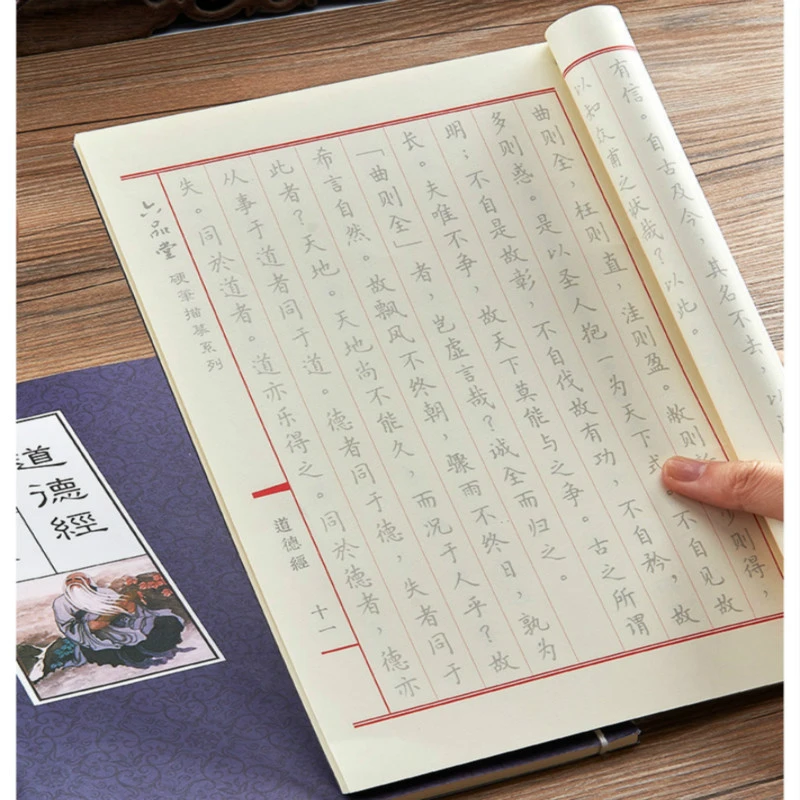 有信。自古及今，其名不去，以
以知众甫之状哉？以此。
曲则全，枉则直，洼则盈。敝则 少则得，
多则惑。是以圣人抱一为天下式。不自见故
明；不自是故彰，不自伐故有功，不自矜，故
长。夫唯不争，故天下莫能与之争。古之所谓
「曲则全」者，岂虚言哉？诚全而归之。
希言自然。故飘风不终朝，骤雨不终日，孰为
此者？天地。天地尚不能久，而况于人乎？故
从事于道者同于道。德者同于德，失者同于
失。同於道者。道亦乐得之。同於德者，德亦
六品堂 硬筆描摹系列
道德經
十一
道德經